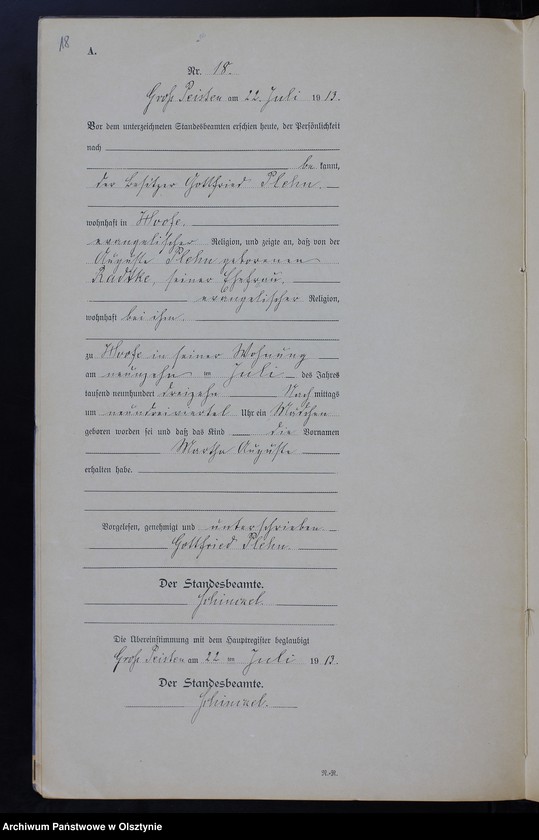 18
A.
Nr. 18.
Groß Peisten am 22. Juli 1913.
Vor dem unterzeichneten Standesbeamten erschien heute, der Persönlichkeit
nach
be kannt,
der Besitzer Gottfried Plehn
wohnhaft in Woofe.
evangelischer Religion, und zeigte an, daß von der
Auguste Plehn geborenen
Radtke, seiner Ehefrau,
evangelischer Religion,
wohnhaft bei ihm.
zu Woofe in seiner Wohnung
am neunzehn ten Juli des Jahres
tausend neunhundert dreizehn Nach mittags
um Uhr ein Mädchen
geboren worden sei und daß das Kind die Vornamen
Martha Auguste
erhalten habe.
Vorgelesen, genehmigt und unterschrieben
Gottfried Plehn.
Der Standesbeamte.
Die Übereinstimmung mit dem Hauptregister beglaubigt
Groß Peisten am 22 ten Juli 1913.
Der Standesbeamte.
N.-R.
Archiwum Państwowe w Olsztynie